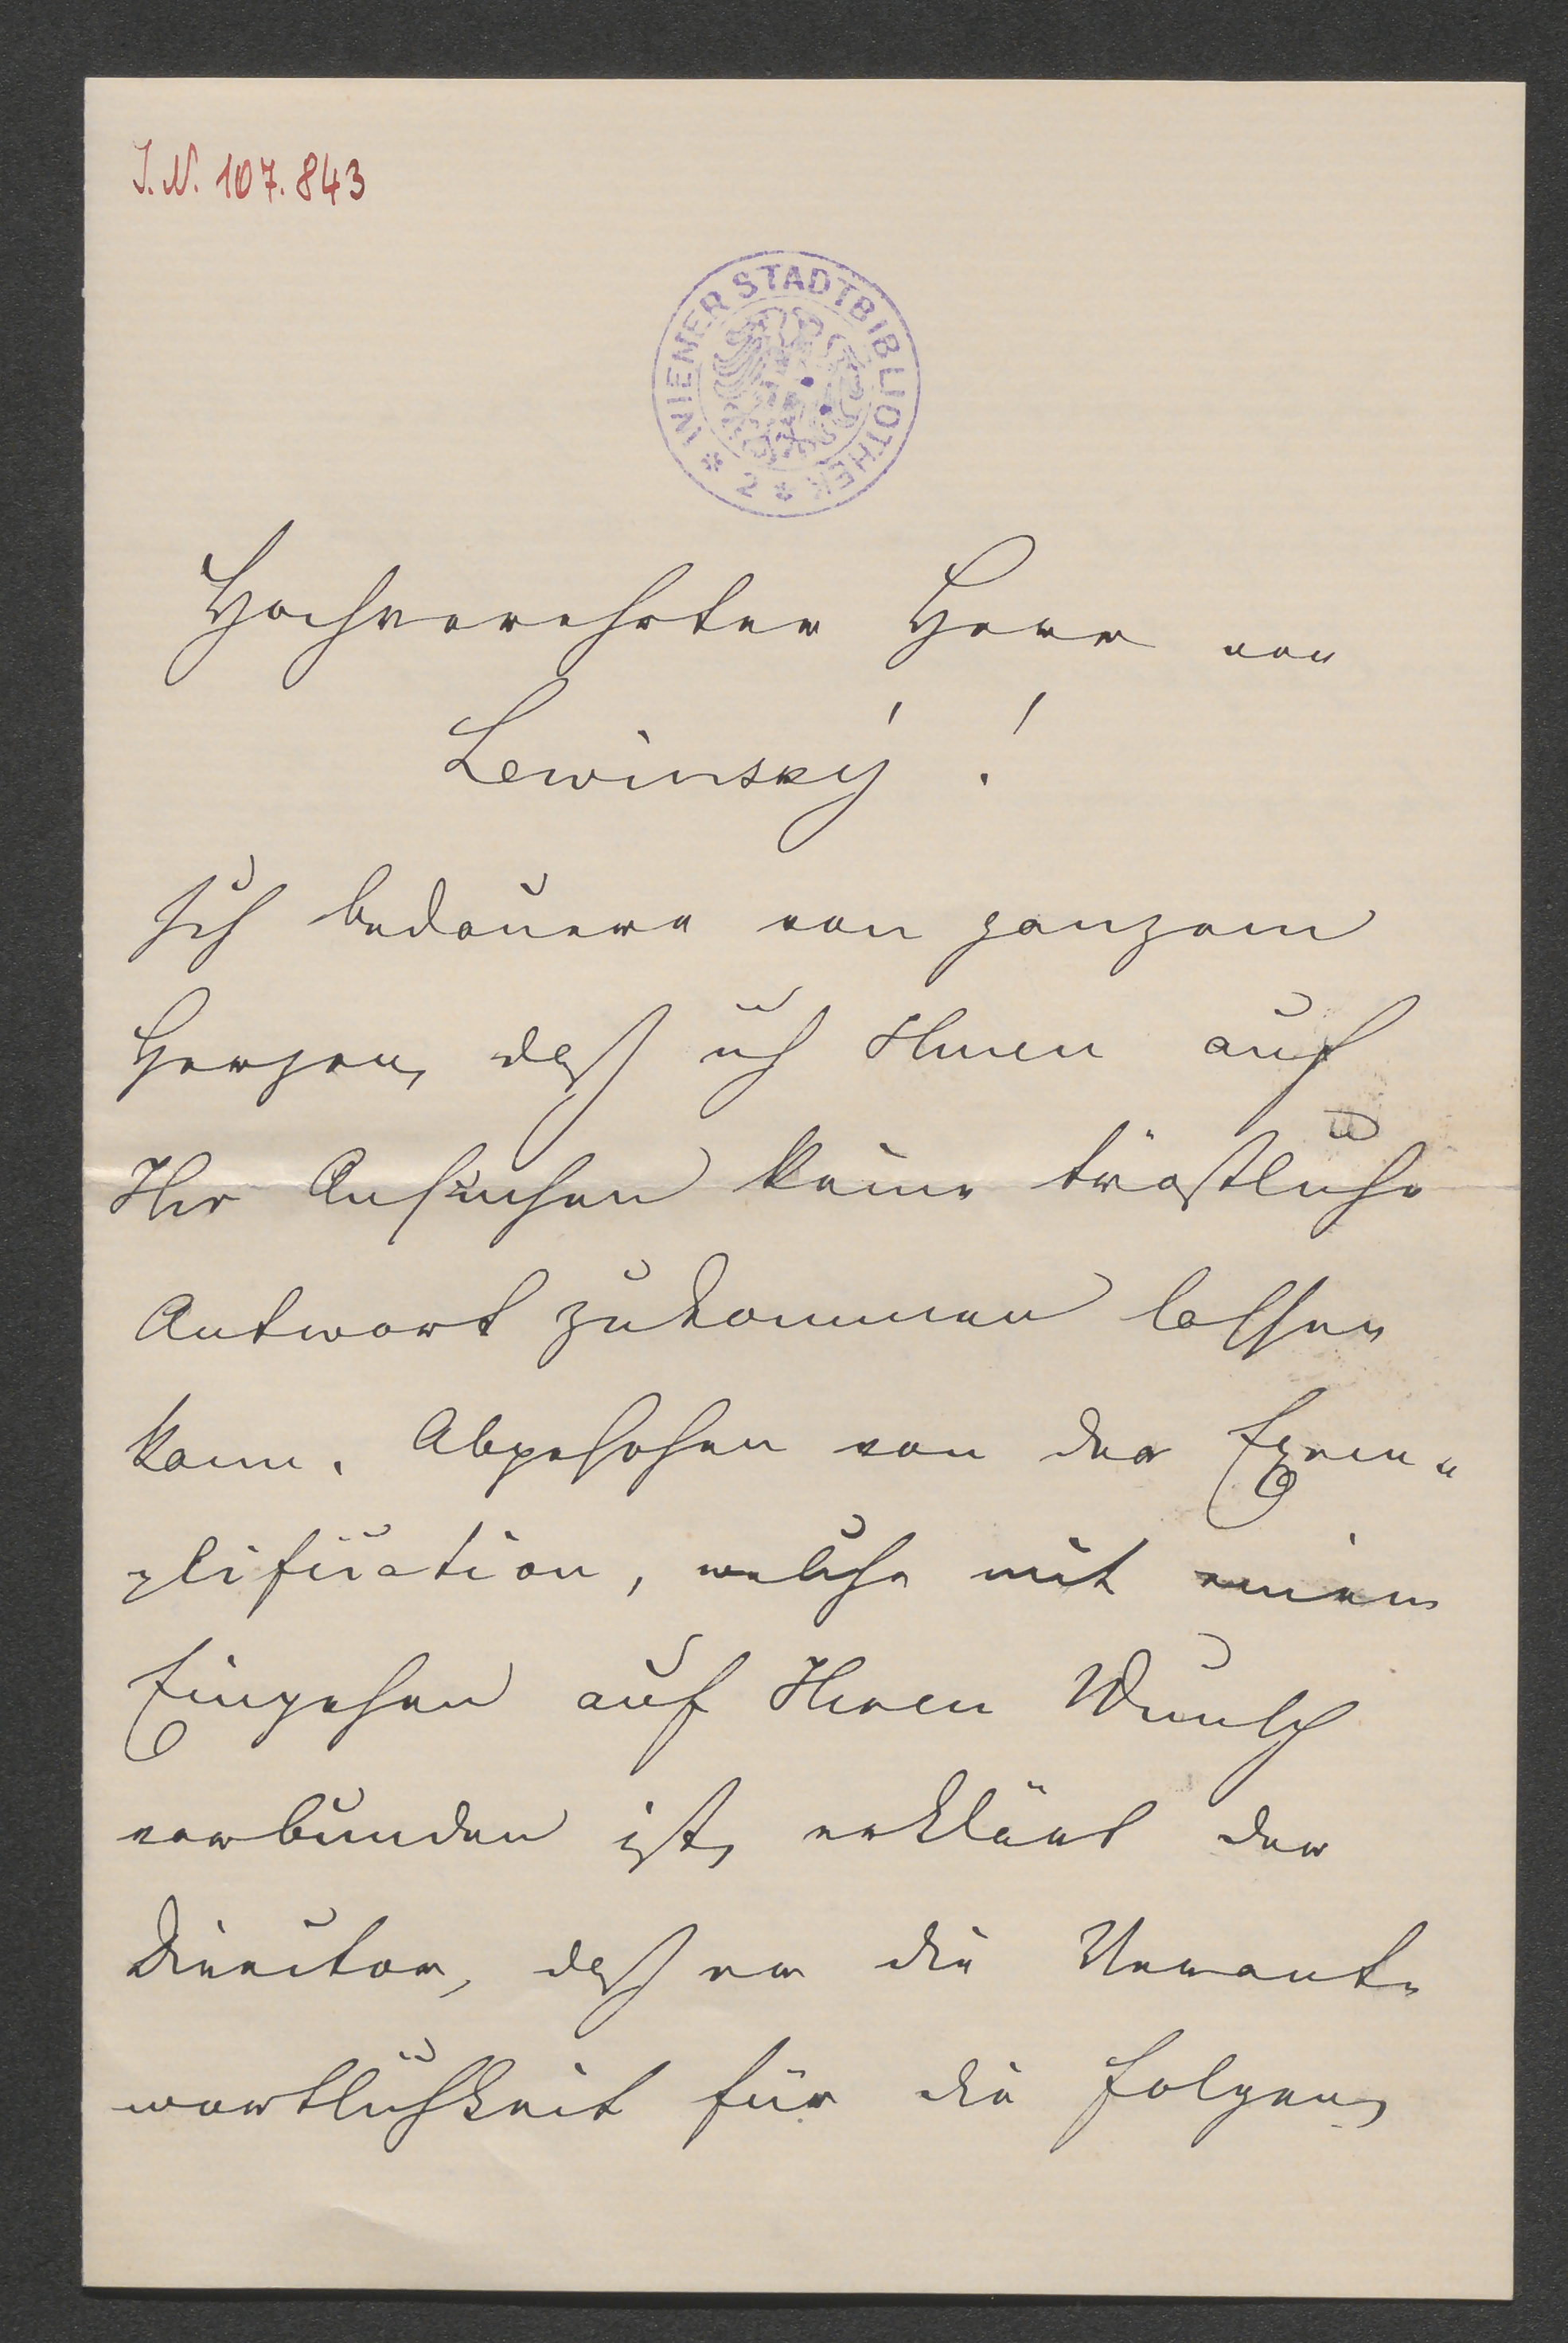 J.N. 107.843
WIENER STADTBIBLIOTHEK * 2 *
Hochverehrter Herr von
Lewinsky!
Ich bedauere von ganzem
Herzen, daß ich Ihnen auf
Ihr Ansuchen keine tröstliche
Antwort zukommen lassen
kann. Abgesehen von der Exem-
plification, welche mit einem
Eingehen auf Ihren Wunsch
verbunden ist, erklärt der
Director, daß er die Verant-
wortlichkeit für die Folgen,